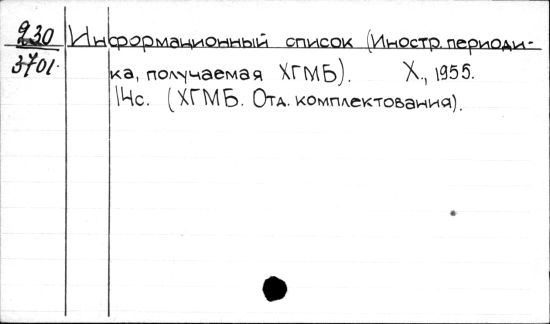 230 Информационный список (Иностр. периоди-
3701. ка, получаемая ХГМБ). Х., 1955.
14с. (ХГМБ. Отд. комплектования).